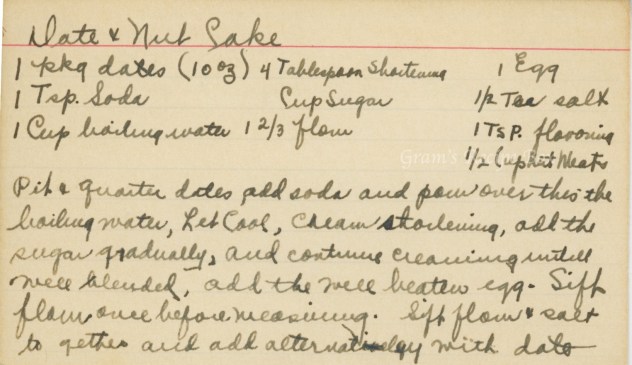 Date & Nut Cake
1 pkg dates (10 oz) 4 Tablespoon Shortening 1 Egg
1 Tsp. Soda Cup Sugar 1/2 Tea salt
1 Cup boiling water 1 2/3 flour 1 Tsp. flavoring
Gram's
1/2 Cup Nut Meats
Pit & quarter dates, add soda and pour over this the
boiling water, Let Cool, Cream shortening, add the
sugar gradually, and continue creaming until
well blended, add the well beaten egg. Sift
flour once before measuring. Sift flour & salt
to gether and add alternatively with date